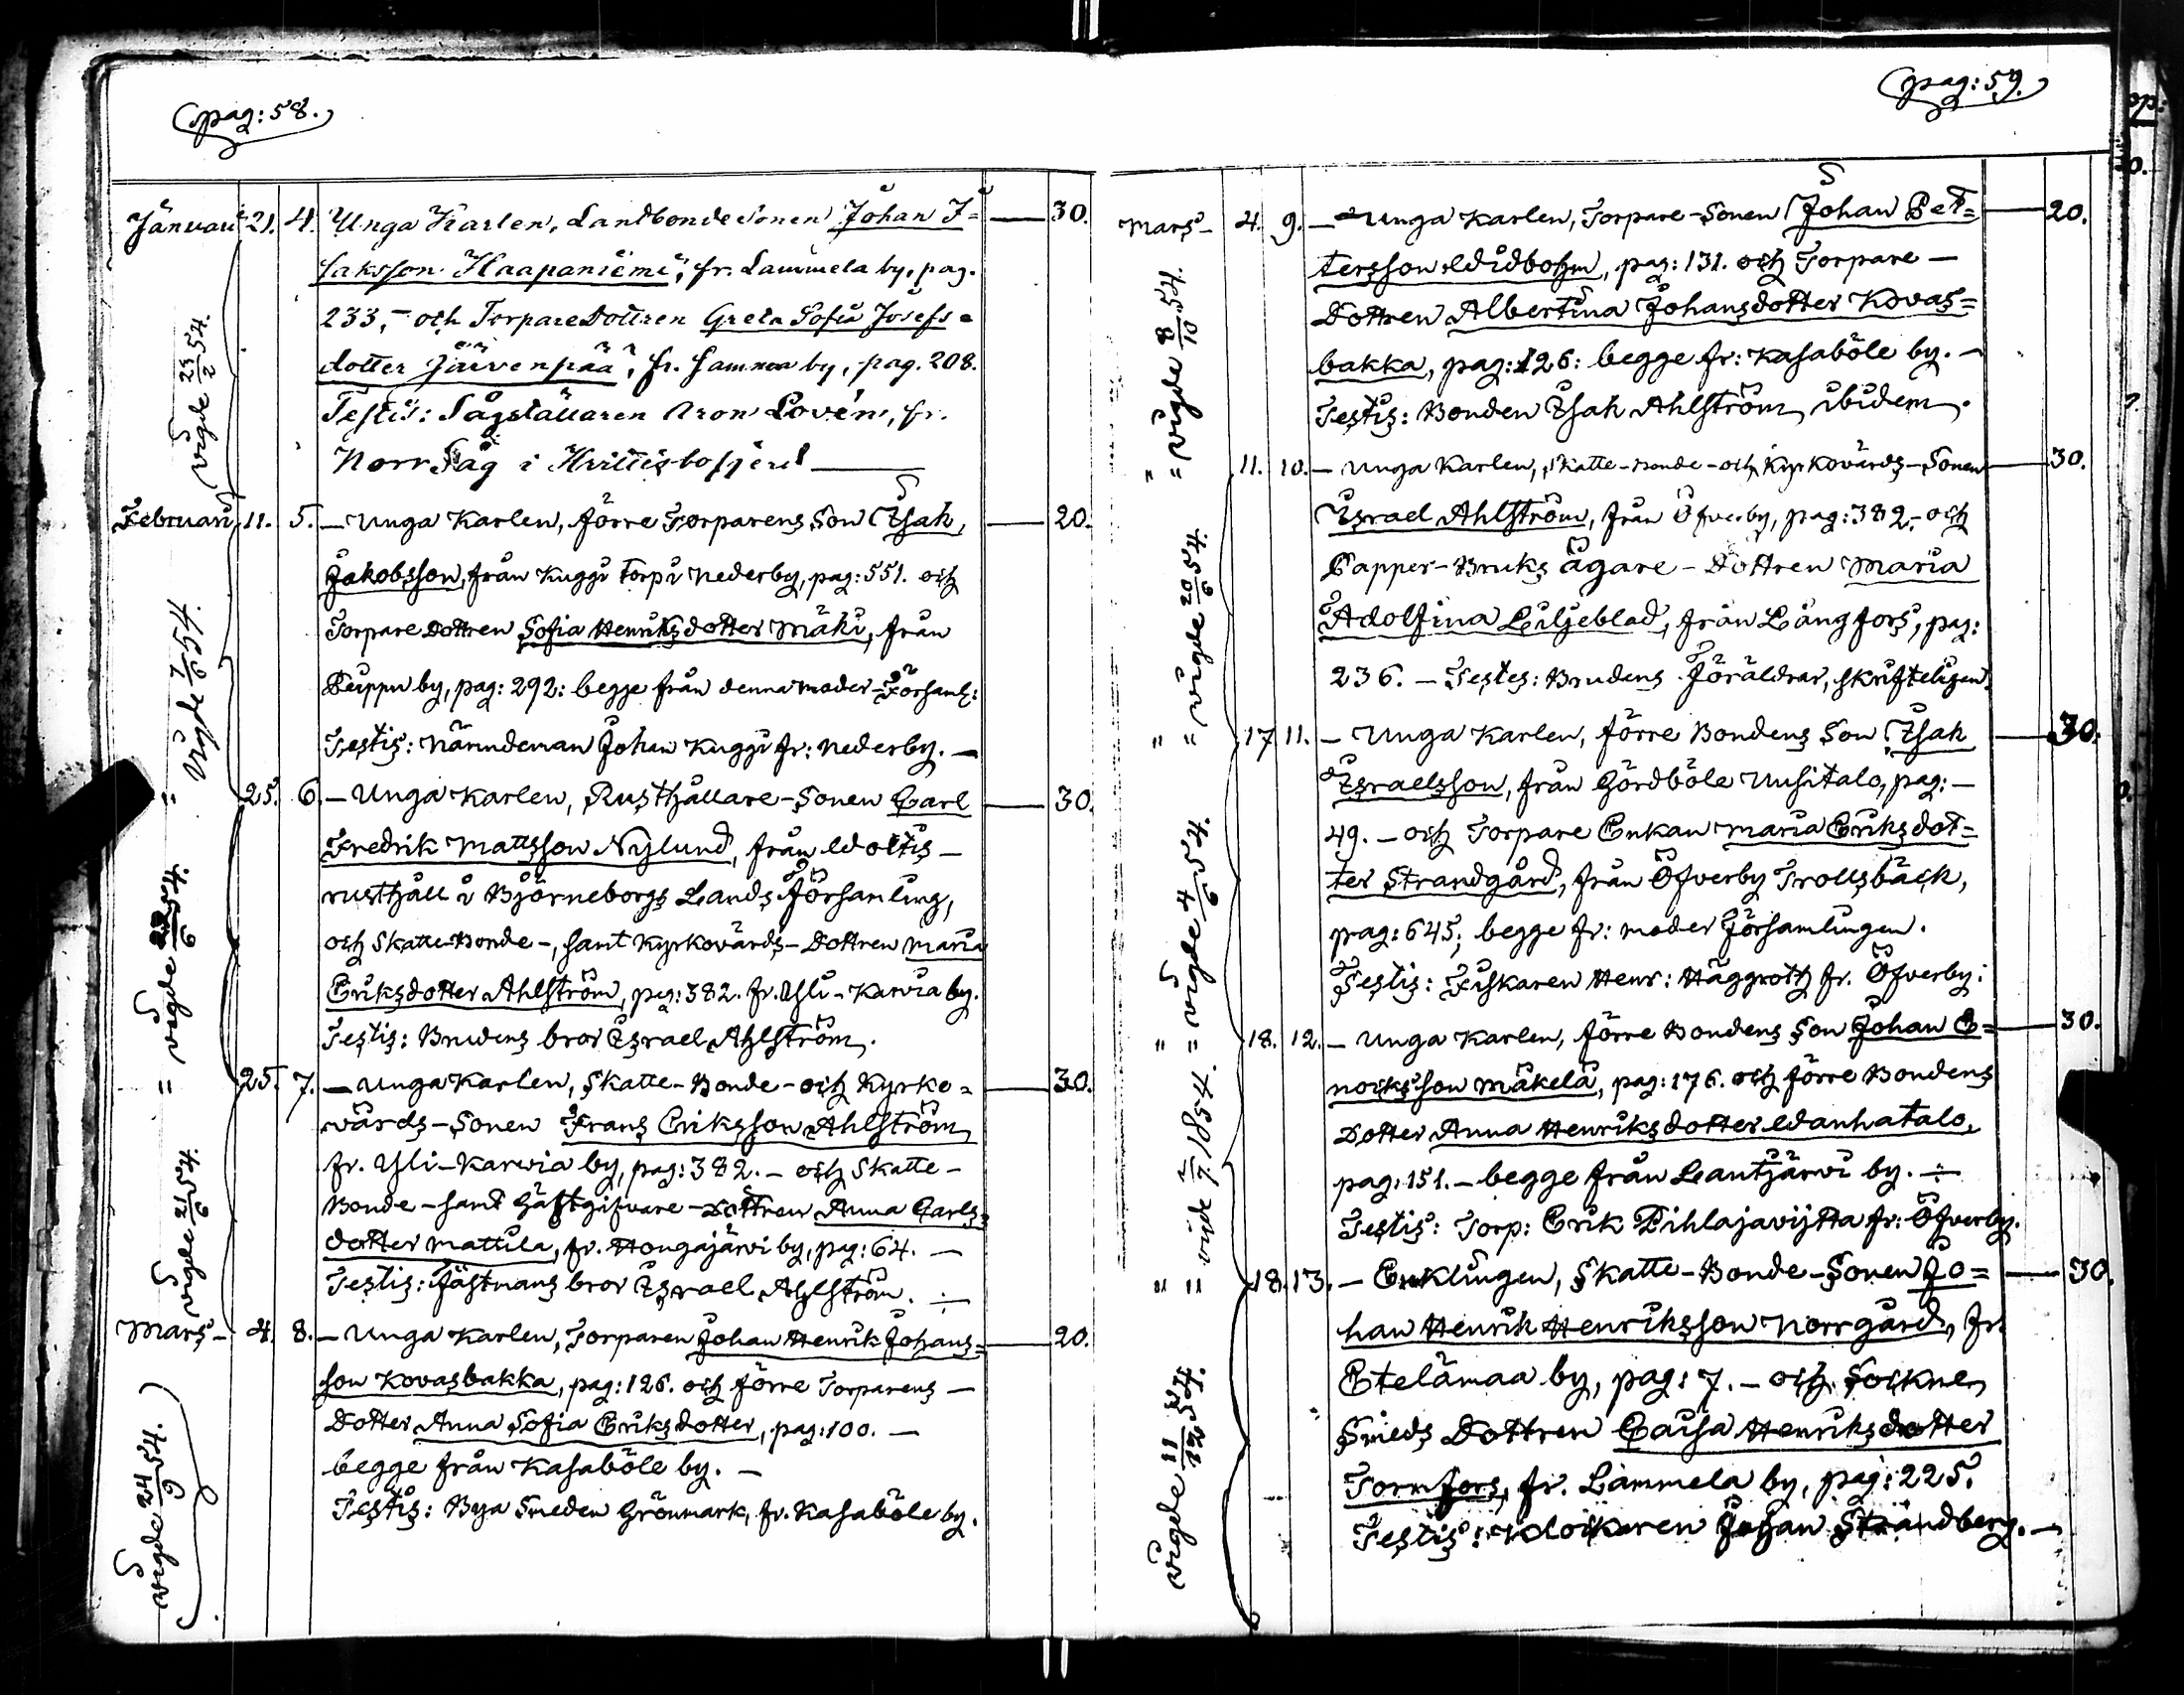 pag: 58.
Januari 21. 4. Unga Karlen, Landbonde Sonen Johan I= — 30.
saksson Haapaniemi, fr. Lammela by, pag.
233, – och Torpare Dottren Greta Sofia Josefs=
dotter Järvenpää, fr. samma by, pag. 208.
Testis: Sågställaren Aron Lovén, fr.
Norr Såg i Hvittisbofjerd —
vigde 23/2 54.
Februari 11. 5. — Unga Karlen, förre Torparens Son Isak — 20.
Jakobsson, från Kuggi torp i Nederby, pag: 551. och
Torpare Dottren Sofia Henriksdotter Mäki, från
Peippu by, pag: 292: begge från denna moder-Församl:
Testis: Nämndeman Johan Kuggi fr: Nederby. —
= vigde 9/7 54.
25. 6. — Unga Karlen, Rusthållare-Sonen Carl — 30.
Fredrik Mattsson Nylund, från
rusthåll i Björneborgs Lands Församling,
och Skatte-Bonde-, samt Kyrkovärds-Dottren Maria
Eriksdotter Ahlström, pag: 382. fr. Yli-Karvia by.
Testis: Brudens bror Israel Ahlström.
= vigde 54.
25. 7. — Unga Karlen, Skatte-Bonde- och Kyrko= — 30.
värds-Sonen Frans Eriksson Ahlström
fr. Yli-Karvia by, pag: 382. — och Skatte-
Bonde-samt Gästgifvare-Dottren Anna Carls=
dotter Mattila, fr. Hongajärvi by, pag: 64. —
Testis: Fästmans bror Israel Ahlström. ÷
= vigde 54.
Mars — 4. 8. — Unga Karlen, Torparen Johan Henrik Johans= — 20.
son Kovasbakka, pag: 126. och förre Torparens —
Dotter Anna Sofia Eriksdotter, pag: 100. —
begge från Kasaböle by. —
Testis: Bya Smeden Grönmark, fr. Kasaböle by.
vigde 24/6 54.
pag: 59.
Mars — 4. 9. — Unga Karlen, Torpare-Sonen Johan Pet= — 20.
tersson Widbohm, pag: 131. och Torpare —
Dottren Albertina Johansdotter Kovas=
bakka, pag: 126: begge fr: Kasaböle by. —
Testis: Bonden Isak Ahlström, ibidem.
" = vigde 8/10 54.
11. 10. — Unga Karlen, Skatte-Bonde- och Kyrkovärds-Sonen — 30.
Israel Ahlström, från Öfverby, pag: 382, – och
Papper-Bruks ägare-Dottren Maria
Adolfina Liljeblad, från Långfors, pag:
236. — Testes: Brudens Föräldrar, skrifteligen.
" = vigde 20 54.
17. 11. — Unga Karlen, förre Bondens Son Isak — 30.
Israelsson, från Gördböle Uusitalo, pag: —
49. — och Torpare Enkan Maria Eriksdot=
ter Strandgård, från Öfverby Trollsbäck,
pag: 645; begge fr: moder Församlingen.
Testis: Fiskaren Henr: Häggroth fr. Öfverby:
" = vigde 4 54.
18. 12. — Unga Karlen, förre Bondens Son Johan E= — 30.
nocksson Mäkelä, pag: 176. och förre Bondens
Dotter Anna Henriksdotter Wanhatalo,
pag: 151. — begge från Lantjärwi by. ÷
Testis: Torp: Erik Pihlajaviitta fr: Öfverby.
" = vigde 54.
18. 13. — Enklingen, Skatte-Bonde-Sonen Jo= — 30.
han Henrik Henriksson Norrgård, fr.
Etelämaa by, pag: 7. — och Sockne
Smeds Dottren Caisa Henriksdotter
Tornfors, fr. Lammela by, pag: 225.
Testis: Klockaren Johan Strandberg. —
vigde 11 54.